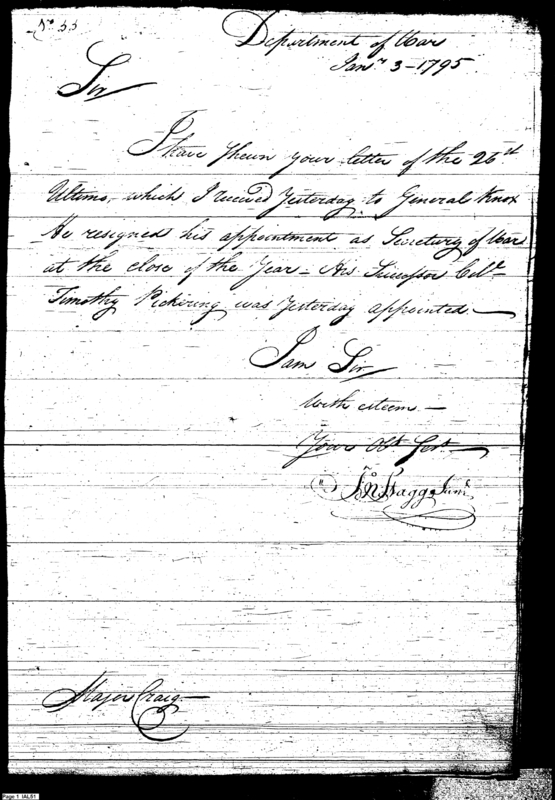 No. 33
Department of War
Jany. 3 - 1795
Sir
I have shewn your letter of the 26th
Ultimo, which I received Yesterday, to General Knox
He resigned his appointment as Secretary of War
at the close of the Year - His Successor Coll.
Timothy Pickering was Yesterday appointed. -
I am Sir
With esteem -
Your Obt. Sert. -
Jno. Stagg Junr.
Major Craig -
Page 1 IAL51